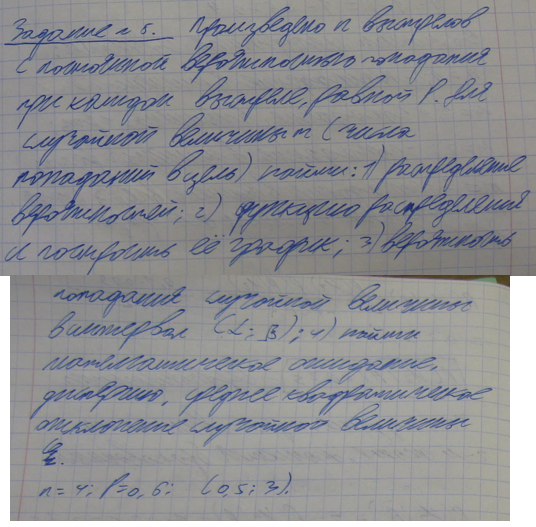 Задание № 5. Произведено n выстрелов
с постоянной вероятностью попадания
при каждом выстреле, равной P. Для
случайной величины m (числа
попаданий в цель) найти: 1) распределение
вероятностей; 2) функцию распределения
и построить её график; 3) вероятность
попадания случайной величины
в интервал (α; β); 4) найти
математическое ожидание,
дисперсию, среднее квадратическое
отклонение случайной величины
n = 4; P = 0,6; (0,5; 3).